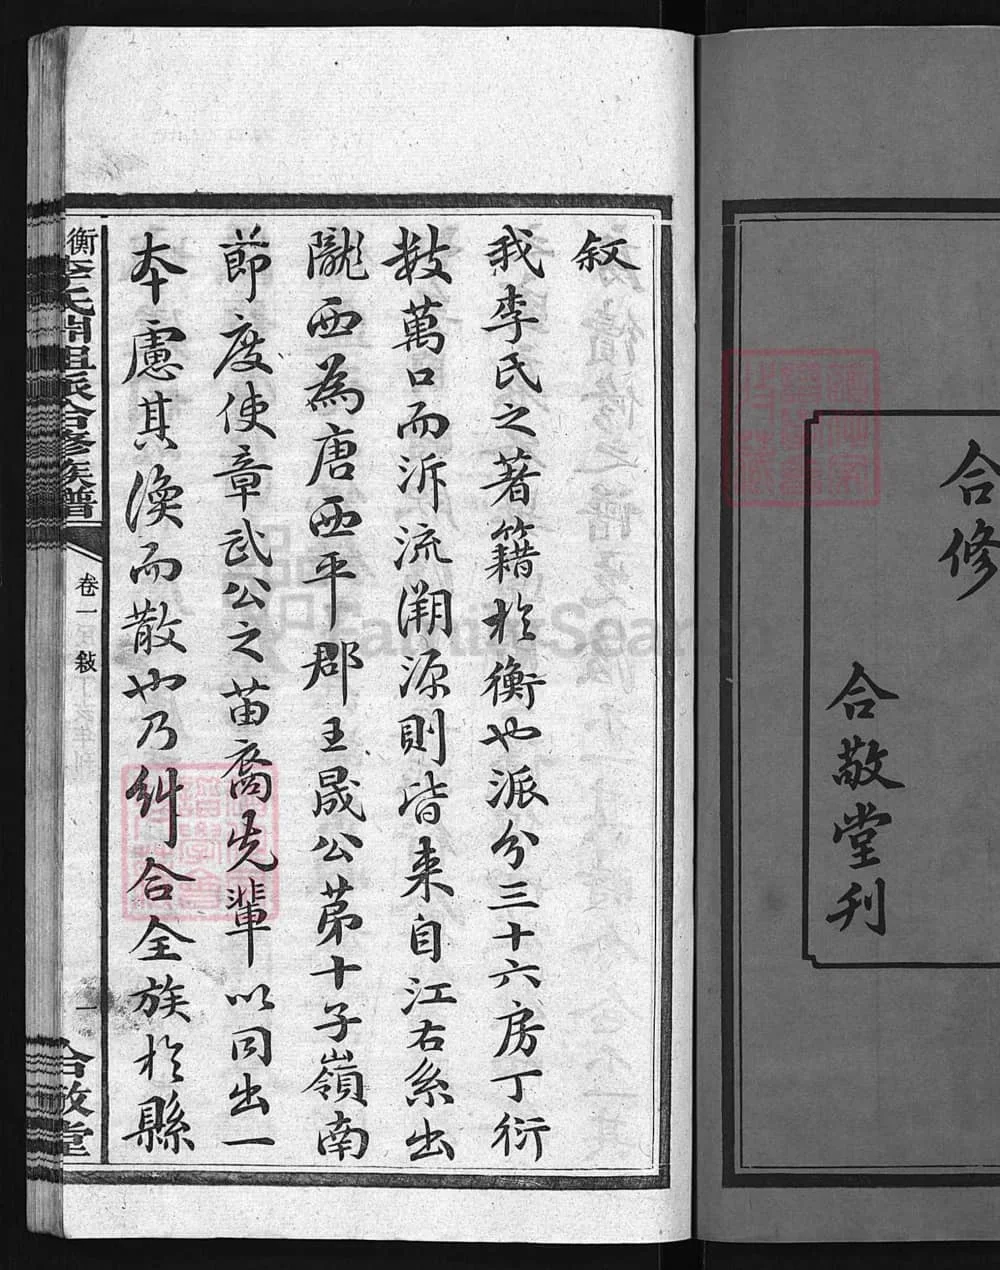 合修
合敬堂刋
叙
我李氏之著籍於衡也派分三十六房丁衍
數萬口而泝流溯源則皆来自江右系出
隴西為唐西平郡王晟公苐十子嶺南
節度使章武公之苗裔先輩以同出一
本慮其渙而散也乃糾合全族於縣
衡李氏開祖派合修族譜
卷一 敍
一
合敬堂
FamilySearch